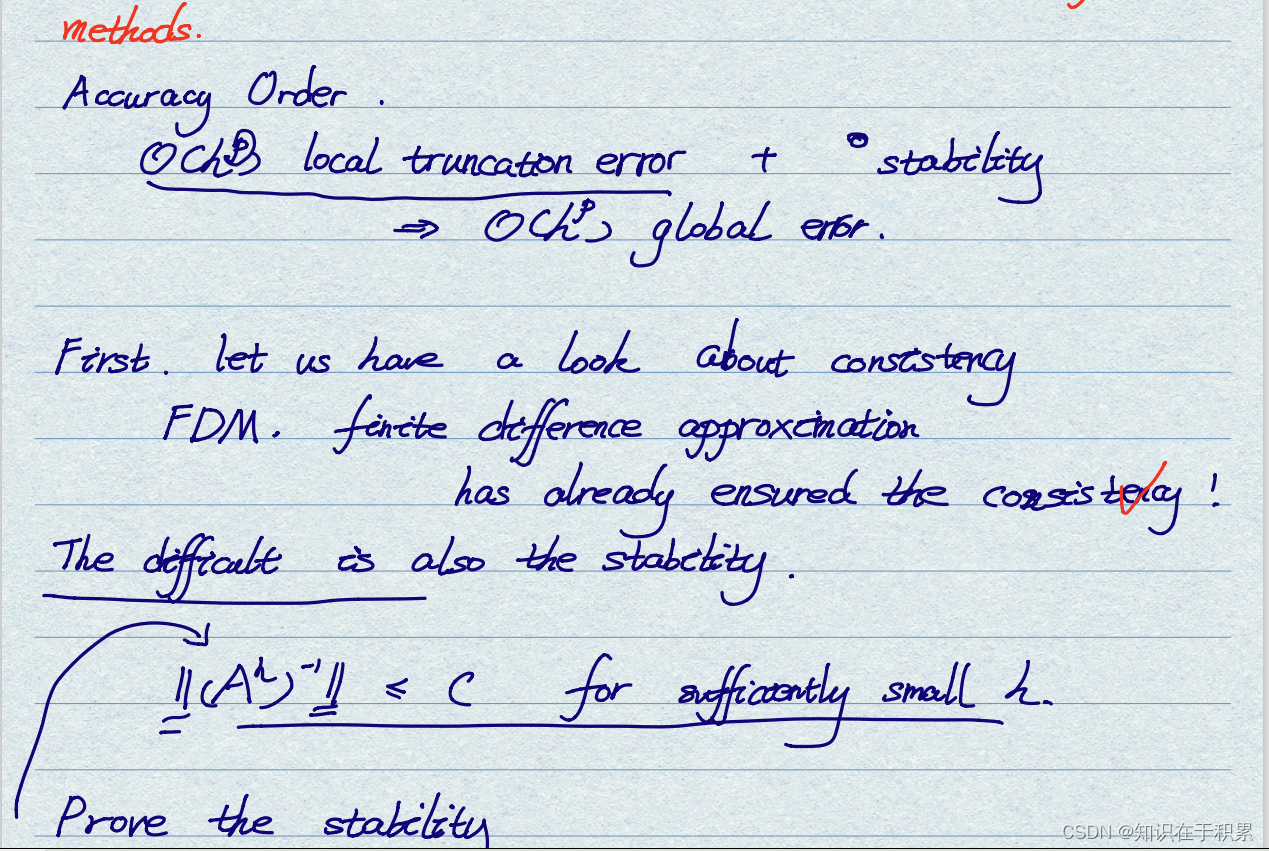 methods.
Accuracy Order.
O(h^p) local truncation error + stability
⇒ O(h^p) global error.
First. let us have a look about consistency
FDM. finite difference approximation
has already ensured the consistency!
The difficult is also the stability.
||(A^h)^-1|| ≤ C for sufficiently small h.
Prove the stability
CSDN @知识在于积累